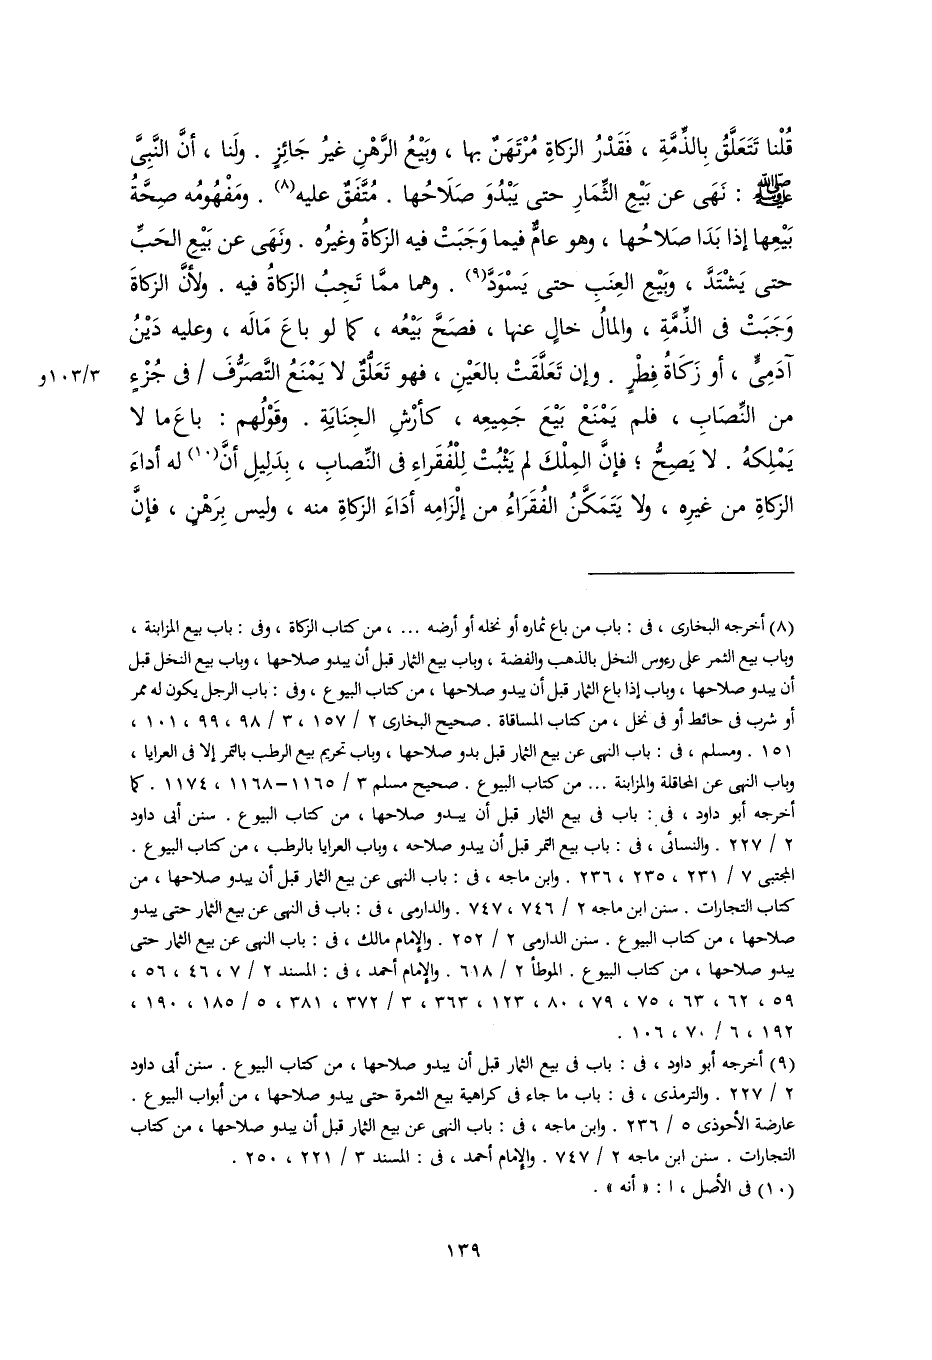 قُلْنا تَتَعَلَّقُ بِالذِّمَّةِ ، فَقَدْرُ الزكاةِ مُرْتَهَنٌ بها ، وبَيْعُ الرَّهْنِ غيرُ جَائِزٍ . ولَنا ، أنَّ النَّبِيَّ
ﷺ : نَهَى عن بَيْعِ الثِّمَارِ حتى يَبْدُوَ صَلَاحُها . مُتَّفَقٌ عليه(٨) . ومَفْهُومُه صِحَّةُ
بَيْعِها إذا بَدَا صَلاحُها ، وهو عامٌّ فيما وَجَبَتْ فيه الزكاةُ وغيرُه . ونَهَى عن بَيْعِ الحَبِّ
حتى يَشْتَدَّ ، وبَيْعِ العِنَبِ حتى يَسْوَدَّ(٩) . وهما ممَّا تَجِبُ الزكاةُ فيه . ولأنَّ الزكاةَ
وَجَبَتْ فى الذِّمَّةِ ، والمالُ خالٍ عنها ، فصَحَّ بَيْعُه ، كما لو باعَ مَالَه ، وعليه دَيْنُ
آدَمِىٍّ ، أو زَكَاةُ فِطْرٍ . وإن تَعَلَّقَتْ بالعَيْنِ ، فهو تَعَلُّقٌ لا يَمْنَعُ التَّصَرُّفَ / فى جُزْءٍ
١٠٣/٣و
من النِّصَابِ ، فلم يَمْنَعْ بَيْعَ جَمِيعِه ، كأَرْشِ الجِنَايَةِ . وقَوْلُهم : باعَ ما لا
يَمْلِكهُ . لا يَصِحُّ ؛ فإنَّ المِلْكَ لم يَثْبُتْ لِلْفُقَراءِ فى النِّصابِ ، بِدَلِيلِ أنَّ(١٠) له أداءَ
الزكاةِ من غيرِه ، ولا يَتَمَكَّنُ الفُقَرَاءُ من إلْزَامِه أدَاءَ الزكاةِ منه ، وليس بِرَهْنٍ ، فإنَّ
(٨) أخرجه البخارى ، فى : باب من باع ثماره أو نخله أو أرضه ... ، من كتاب الزكاة ، وفى : باب بيع المزابنة ،
وباب بيع الثمر على رءوس النخل بالذهب والفضة ، وباب بيع الثمار قبل أن يبدو صلاحها ، وباب بيع النخل قبل
أن يبدو صلاحها ، وباب إذا باع الثمار قبل أن يبدو صلاحها ، من كتاب البيوع ، وفى : باب الرجل يكون له ممر
أو شرب فى حائط أو فى نخل ، من كتاب المساقاة . صحيح البخارى ٢ / ١٥٧ ، ٣ / ٩٨ ، ٩٩ ، ١٠١ ،
١٥١ . ومسلم ، فى : باب النهى عن بيع الثمار قبل بدو صلاحها ، وباب تحريم بيع الرطب بالتمر إلا فى العرايا ،
وباب النهى عن المحاقلة والمزابنة ... من كتاب البيوع . صحيح مسلم ٣ / ١١٦٥-١١٦٨ ، ١١٧٤ . كما
أخرجه أبو داود ، فى : باب فى بيع الثمار قبل أن يبدو صلاحها ، من كتاب البيوع . سنن أبى داود
٢ / ٢٢٧ . والنسائى ، فى : باب بيع الثمر قبل أن يبدو صلاحه ، وباب العرايا بالرطب ، من كتاب البيوع .
المجتبى ٧ / ٢٣١ ، ٢٣٥ ، ٢٣٦ . وابن ماجه ، فى : باب النهى عن بيع الثمار قبل أن يبدو صلاحها ، من
كتاب التجارات . سنن ابن ماجه ٢ / ٧٤٦ ، ٧٤٧ . والدارمى ، فى : باب فى النهى عن بيع الثمار حتى يبدو
صلاحها ، من كتاب البيوع . سنن الدارمى ٢ / ٢٥٢ . والإمام مالك ، فى : باب النهى عن بيع الثمار حتى
يبدو صلاحها ، من كتاب البيوع . الموطأ ٢ / ٦١٨ . والإمام أحمد ، فى : المسند ٢ / ٧ ، ٤٦ ، ٥٦ ،
٥٩ ، ٦٢ ، ٦٣ ، ٧٥ ، ٧٩ ، ٨٠ ، ١٢٣ ، ٣٦٣ ، ٣ / ٣٧٢ ، ٣٨١ ، ٥ / ١٨٥ ، ١٩٠ ،
١٩٢ ، ٦ / ٧٠ ، ١٠٦ .
(٩) أخرجه أبو داود ، فى : باب فى بيع الثمار قبل أن يبدو صلاحها ، من كتاب البيوع . سنن أبى داود
٢ / ٢٢٧ . والترمذى ، فى : باب ما جاء فى كراهية بيع الثمرة حتى يبدو صلاحها ، من أبواب البيوع .
عارضة الأحوذى ٥ / ٢٣٦ . وابن ماجه ، فى : باب النهى عن بيع الثمار قبل أن يبدو صلاحها ، من كتاب
التجارات . سنن ابن ماجه ٢ / ٧٤٧ . والإمام أحمد ، فى : المسند ٣ / ٢٢١ ، ٢٥٠ .
(١٠) فى الأصل ، ا : « أنه » .
١٣٩